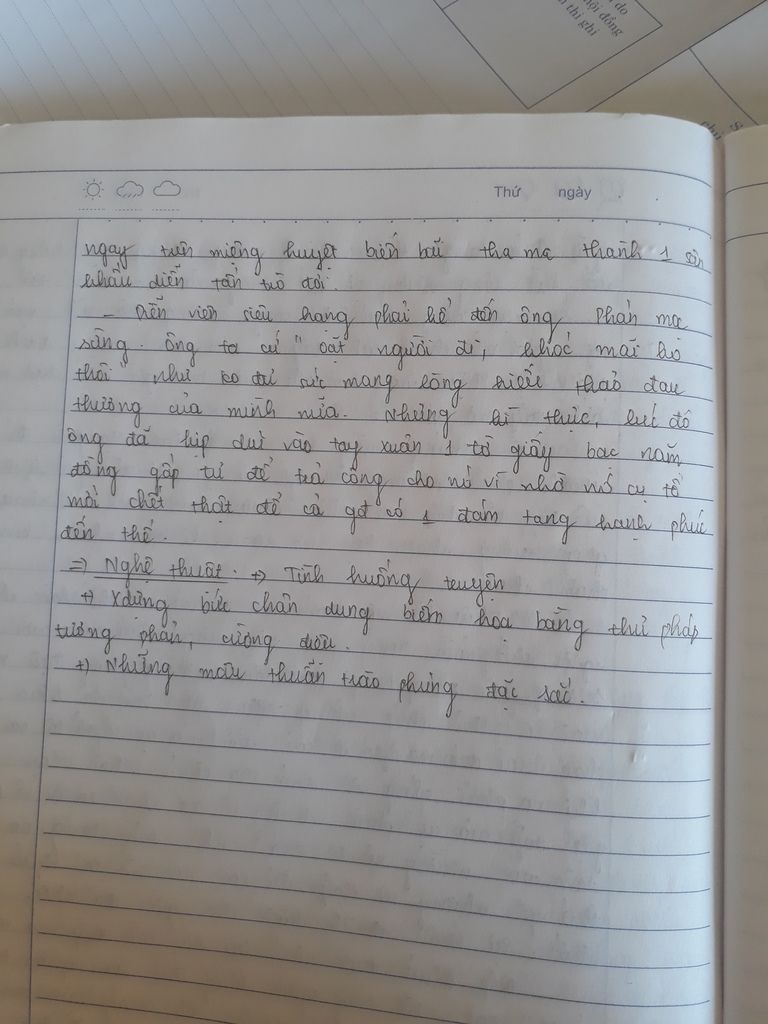 do
hội đồng
thi ghi
Thứ ngày
ngay trên miệng huyệt biến bãi tha ma thành 1 sân
khấu diễn tấn trò đời.
- Diễn viên siêu hạng phải kể đến ông Phán mọc
sừng. Ông ta cứ "oặt người đi, khóc mãi ko
thôi" như ko đủ sức mang lòng hiếu thảo đau
thương của mình nữa. Nhưng kì thực, lúc đó
ông đã kịp dúi vào tay xuân 1 tờ giấy bạc năm
đồng gấp tư để trả công cho nó vì nhờ nó cụ tổ
mới chết thật để cả gđ có 1 đám tang hạnh phúc
đến thế.
=> Nghệ thuật. +) Tình huống truyện
+) Xdựng bức chân dung biếm họa bằng thủ pháp
tương phản, cường điệu.
+) Những mâu thuẫn trào phúng đặc sắc.